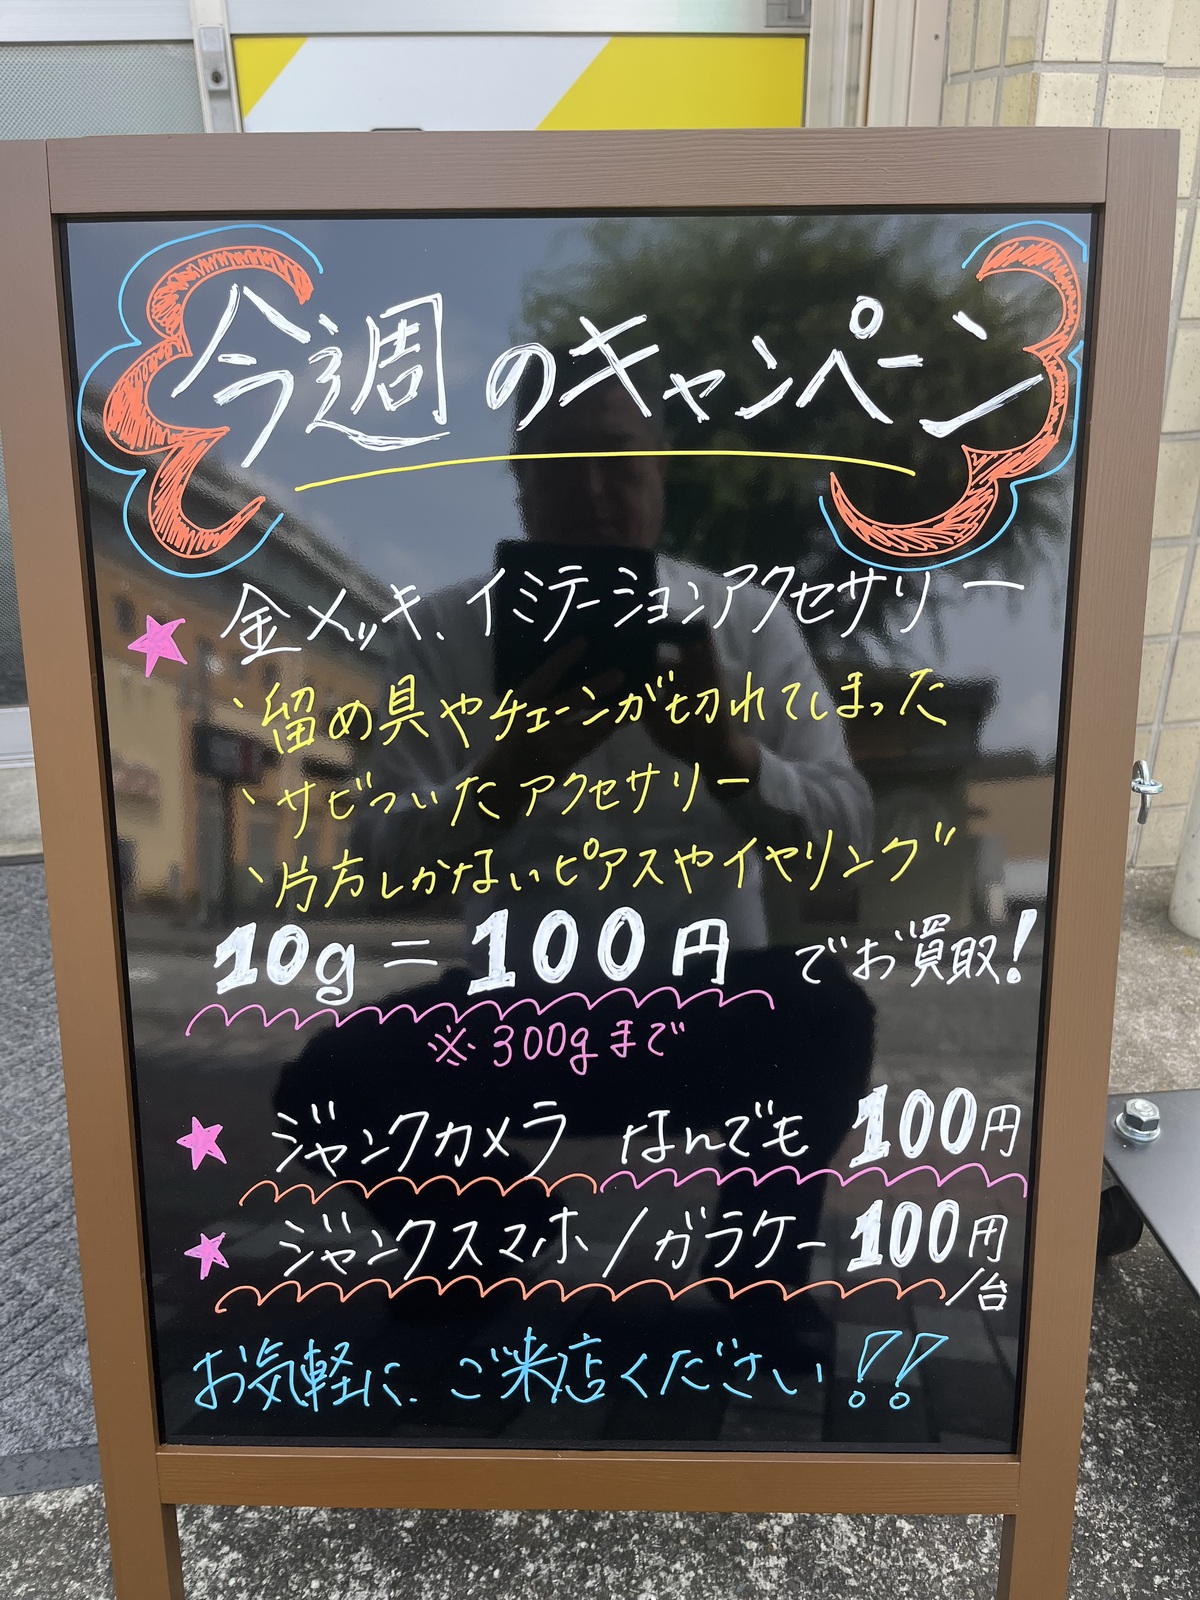 今週のキャンペーン
★ 金メッキ、イミテーションアクセサリー
、留め具やチェーンが切れてしまった
、サビついたアクセサリー
、片方しかないピアスやイヤリング
10g = 100円 でお買取!
※300gまで
★ ジャンクカメラ なんでも 100円
★ ジャンクスマホ/ガラケー 100円
/台
お気軽に、ご来店ください!!